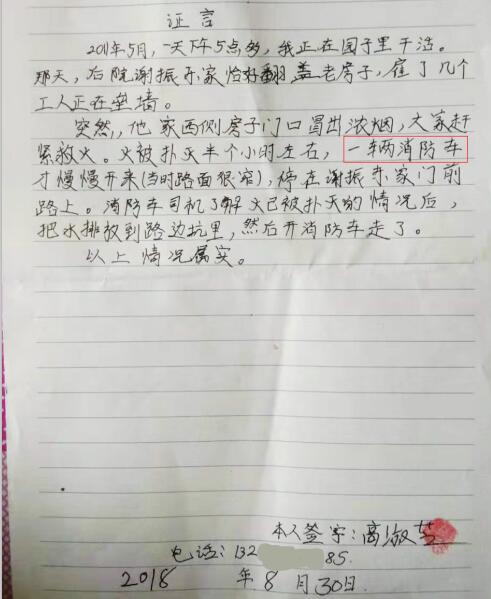 证言
2011年5月,一天下午5点多,我正在园子里干活。
那天,后院谢振东家恰好翻盖老房子,雇了几个
工人正在垒墙。
突然,,他家西侧房子门口冒出浓烟,大家赶
紧救火。火被扑灭半个小时左右,一车两消防车
才慢慢开来(当时路面很窄),停在谢振东家门前
路上。消防车司机了解火已被扑灭的情况后,
把水排放到路边坑里,然后开消防车走了。
以上情况属实。
本人签字:高淑芝
电话:132 85.
2018年8月30日.